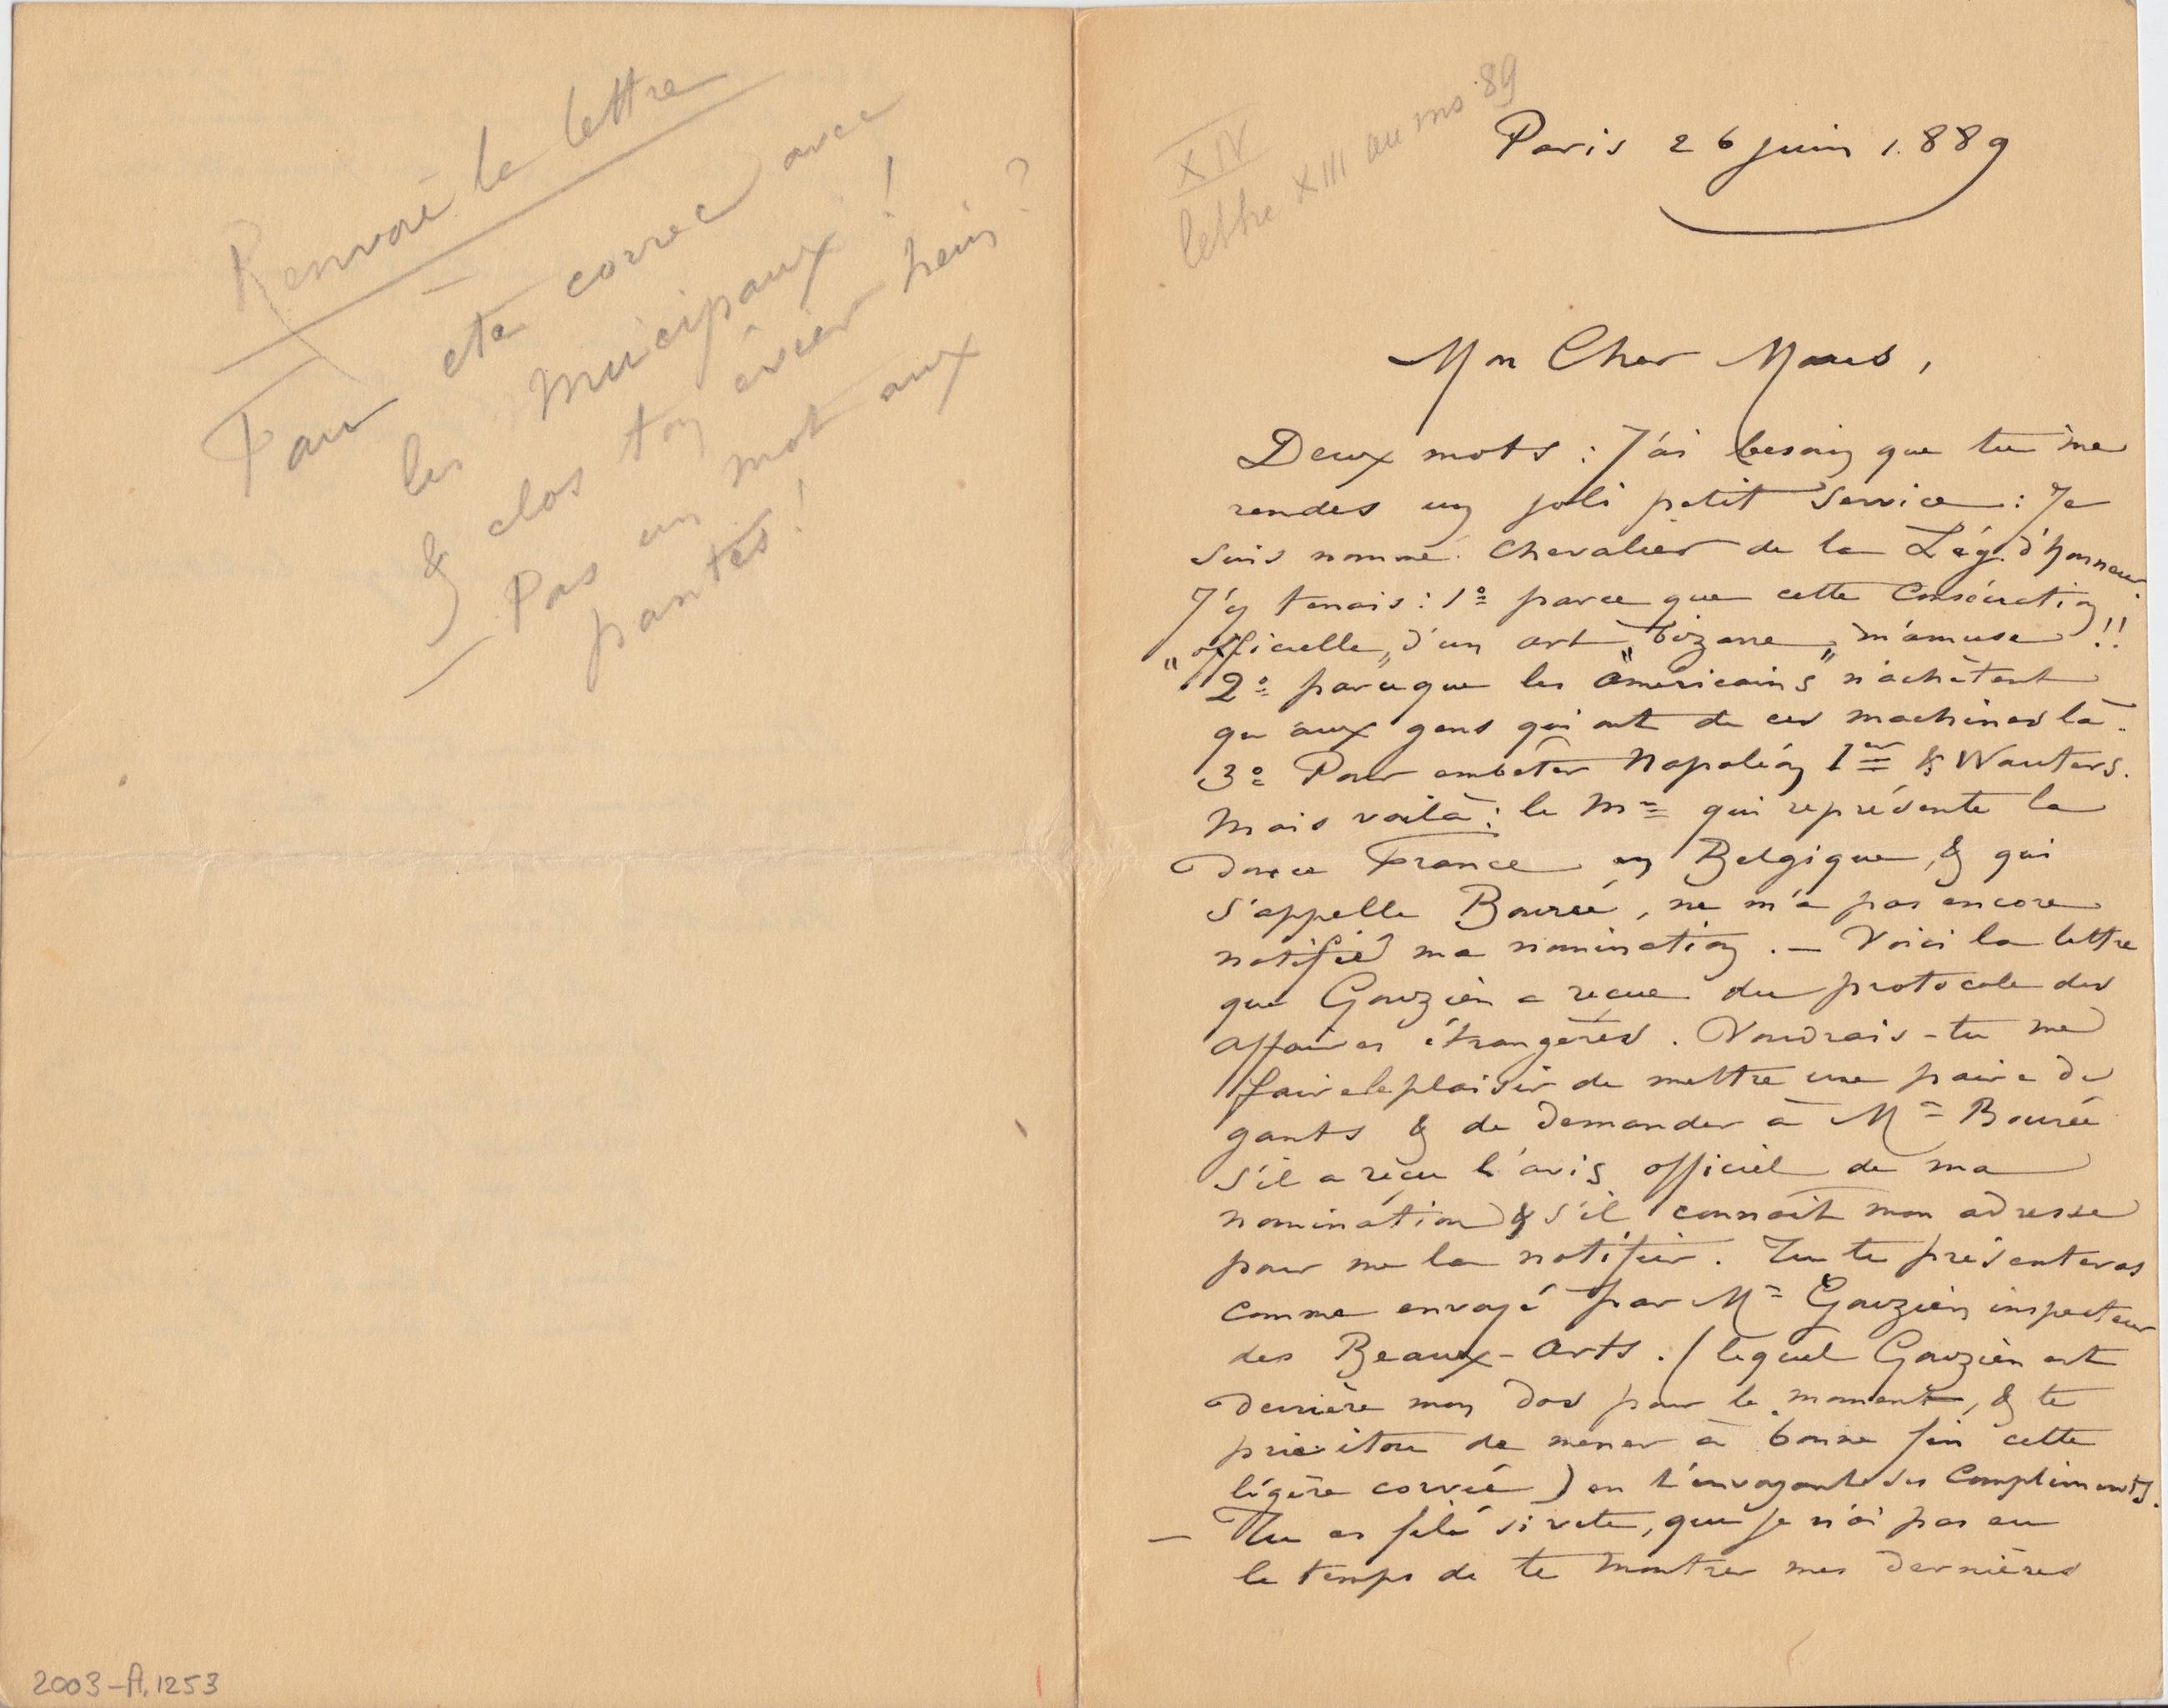 Renvoie la lettre
Faur eté correc avec
les municipaux !
& clos ton évier hein ?
— Pas un mot aux
pantes !
2003-A.1253
XIV
lettre XIII au ms 89
Paris 26 juin 1889
Mon Cher Maus,
Deux mots : J'ai besoin que tu me
rendes un joli petit service : Je
suis nommé Chevalier de la Lég. d'honneur.
J'y tenais : 1º parce que cette Consécration
"officielle" d'un art "bizarre" m'amuse !!
2º parceque les "américains" n'achètent
qu'aux gens qui ont de ces machines là.
3º Pour embêter Napoléon 1er & Wauters.
Mais voilà : le Mr qui représente la
douce France en Belgique, & qui
s'appelle Bourée, ne m'a pas encore
notifié ma nomination. — Voici la lettre
que Gouzien a reçue du protocole des
affaires étrangères. Voudrais-tu me
faire le plaisir de mettre une paire de
gants & de demander à Mr Bourée
s'il a reçu l'avis officiel de ma
nomination & s'il connait mon adresse
pour me la notifier. Tu te présenteras
comme envoyé par Mr Gouzien inspecteur
des Beaux-Arts. (lequel Gouzien est
derrière mon dos pour le moment, & te
prie itou de mener à bonne fin cette
légère corvée) en t'envoyant ses Compliments.
— Tu as filé si vite, que je n'ai pas eu
le temps de te montrer mes dernières